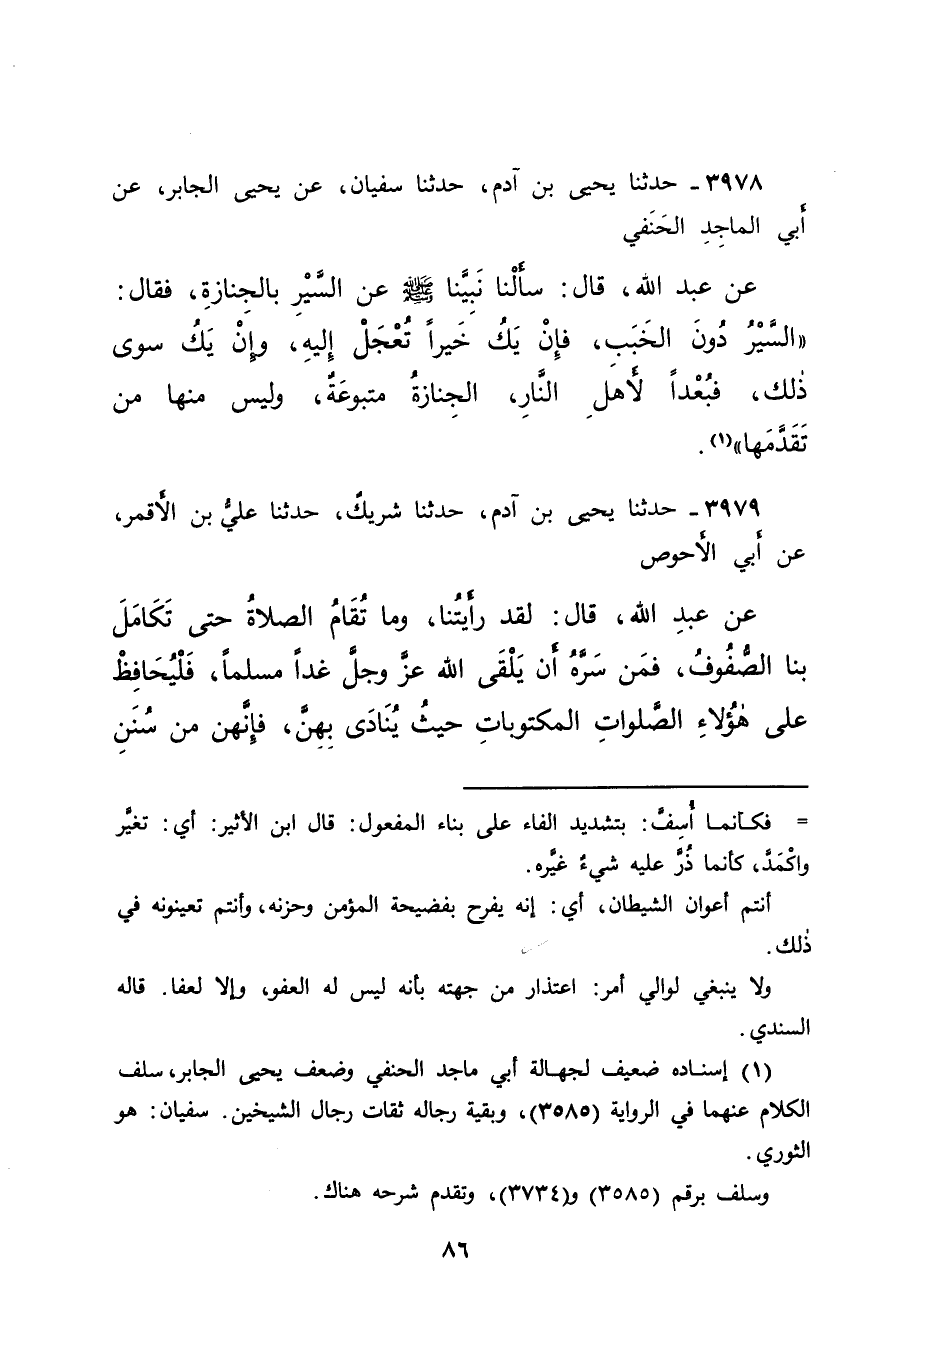 ٣٩٧٨ ـ حدثنا يحيى بن آدم، حدثنا سفيان، عن يحيى الجابر، عن
أَبي الماجِدِ الحَنَفي
عن عبد الله، قال: سأَلْنا نَبِيَّنا ﷺ عن السَّيْرِ بالجِنازةِ، فقال:
«السَّيْرُ دُونَ الخَبَبِ، فإنْ يَكُ خَيراً تُعْجَلْ إليهِ، وإنْ يَكُ سوى
ذٰلك، فبُعْداً لأَهلِ النَّارِ، الجِنازةُ متبوعَةٌ، وليس منها من
تَقَدَّمَها»(١).
٣٩٧٩ ـ حدثنا يحيى بن آدم، حدثنا شريكٌ، حدثنا عليُّ بن الأَقمر،
عن أَبي الأَحوص
عن عبدِ الله، قال: لقد رأَيتُنا، وما تُقَامُ الصلاةُ حتى تَكَامَلَ
بنا الصُّفُوفُ، فمَن سَرَّهُ أَن يَلْقَى الله عزَّ وجلَّ غداً مسلماً، فَلْيُحَافِظْ
على هٰؤُلاءِ الصَّلواتِ المكتوباتِ حيثُ يُنَادَى بِهِنَّ، فإنَّهن من سُنَنِ
= فكأنما أُسِفَّ: بتشديد الفاء على بناء المفعول: قال ابن الأثير: أي: تغيَّر
واكْمَدَّ، كأنما ذُرَّ عليه شيءٌ غيَّره.
أنتم أعوان الشيطان، أي: إنه يفرح بفضيحة المؤمن وحزنه، وأنتم تعينونه في
ذٰلك.
ولا ينبغي لوالي أمر: اعتذار من جهته بأنه ليس له العفو، وإلا لعفا. قاله
السندي.
(١) إسناده ضعيف لجهالة أبي ماجد الحنفي وضعف يحيى الجابر، سلف
الكلام عنهما في الرواية (٣٥٨٥)، وبقية رجاله ثقات رجال الشيخين. سفيان: هو
الثوري.
وسلف برقم (٣٥٨٥) و(٣٧٣٤)، وتقدم شرحه هناك.
٨٦